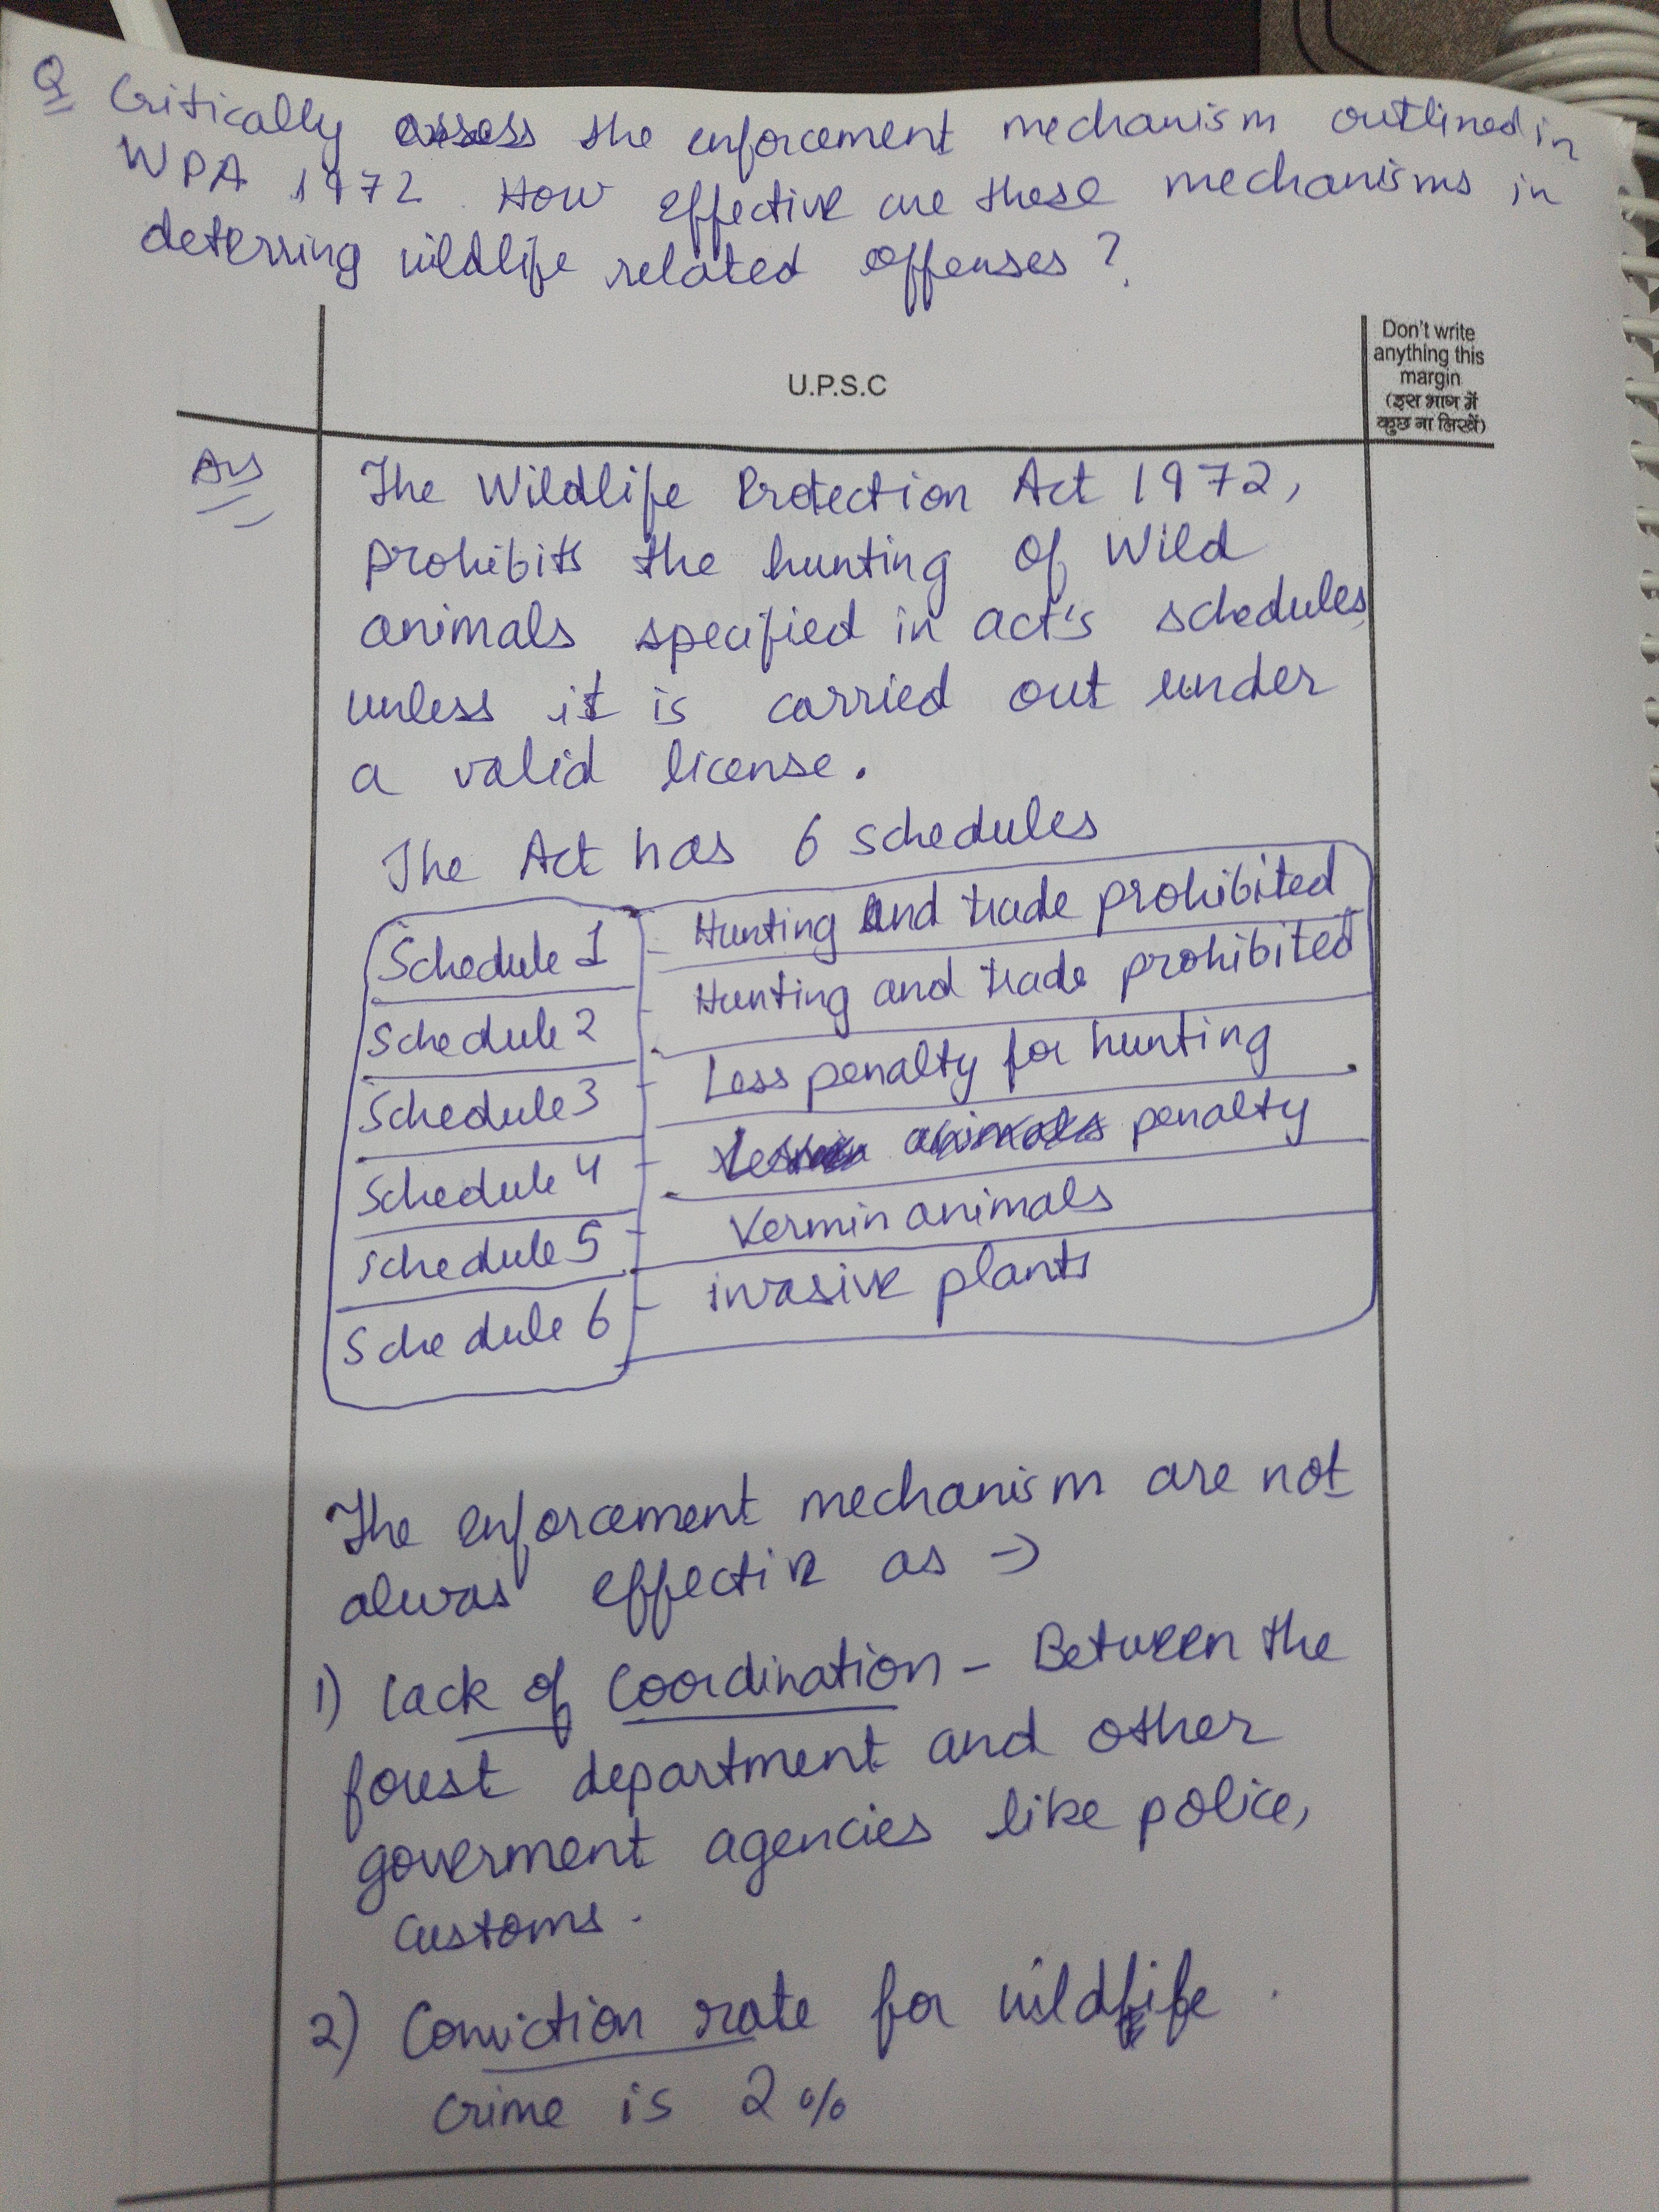 Q Critically assess the enforcement mechanism outlined in
WPA 1972. How effective are these mechanisms in
deterring wildlife related offenses?
Don't write
anything this
margin
(इस भाग में
कुछ ना लिखें)
U.P.S.C
Ans
The Wildlife Protection Act 1972,
prohibits the hunting of wild
animals specified in act's schedules
unless it is carried out under
a valid license.
The Act has 6 schedules
Schedule 1 - Hunting and trade prohibited
Schedule 2 - Hunting and trade prohibited
Schedule 3 - Less penalty for hunting
Schedule 4 - penalty
Schedule 5 - Vermin animals
Schedule 6 - invasive plants
The enforcement mechanism are not
alwas effective as →
1) Lack of Coordination - Between the
forest department and other
goverment agencies like police,
customs.
2) Conviction rate for wildlife
crime is 2%